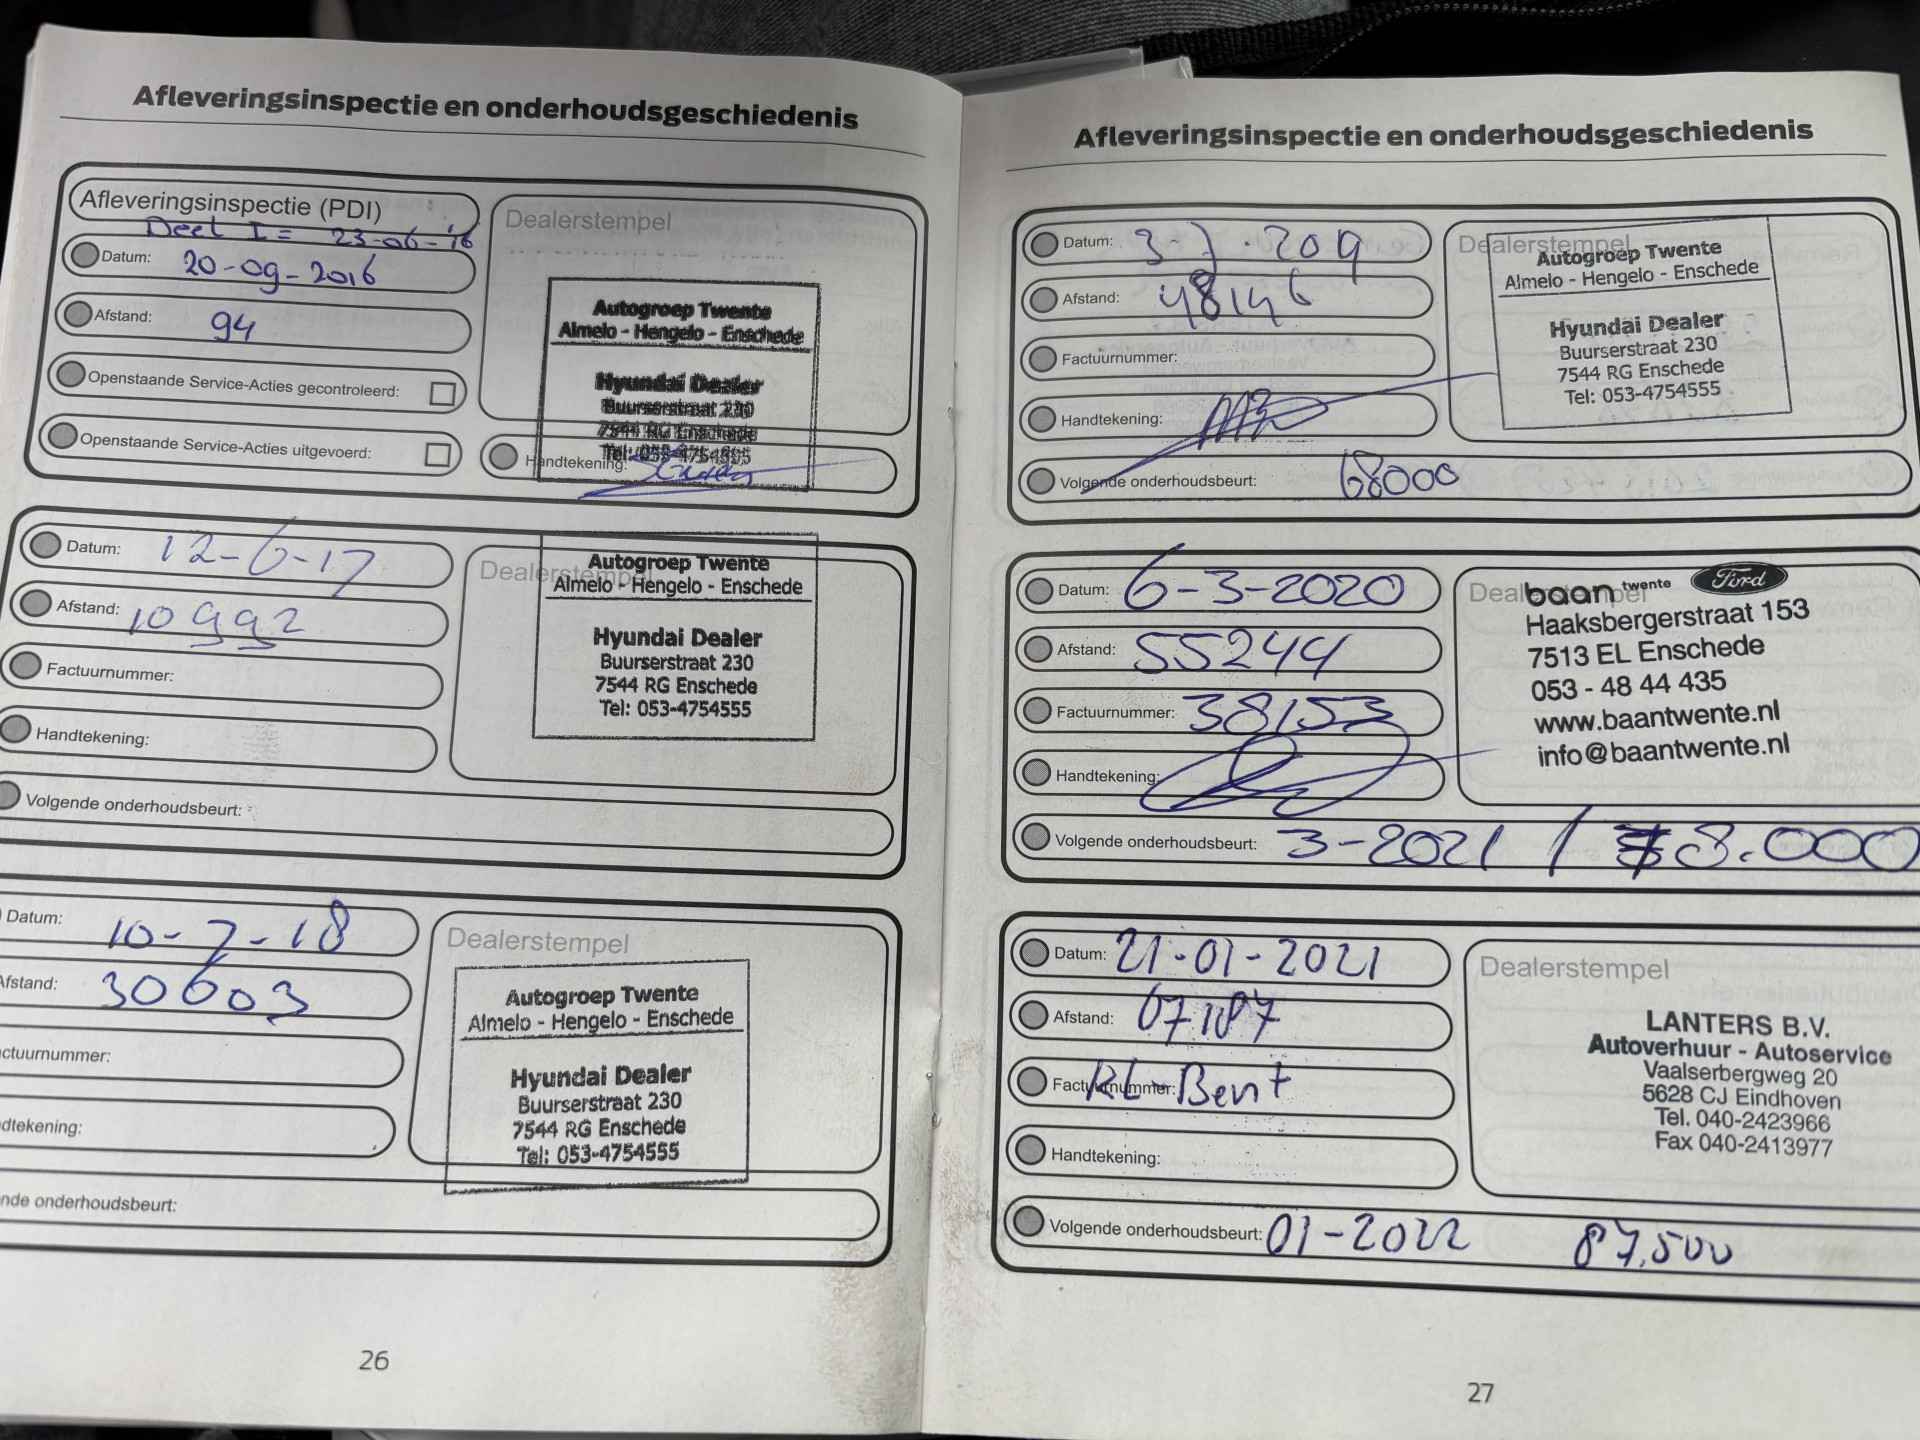 Afleveringsinspectie en onderhoudsgeschiedenis
Afleveringsinspectie (PDI)
Deel I = 23-06-'16
Datum: 20-09-2016
Afstand: 94
Openstaande Service-Acties gecontroleerd:
Openstaande Service-Acties uitgevoerd:
Dealerstempel
Autogroep Twente
Almelo - Hengelo - Enschede
Hyundai Dealer
Buurserstraat 230
7544 RG Enschede
Tel: 053-4754555
Handtekening:
Datum: 12-6-17
Afstand: 10992
Factuurnummer:
Handtekening:
Volgende onderhoudsbeurt:
Dealerstempel
Autogroep Twente
Almelo - Hengelo - Enschede
Hyundai Dealer
Buurserstraat 230
7544 RG Enschede
Tel: 053-4754555
Datum: 10-7-18
Afstand: 30603
ctuurnummer:
dtekening:
nde onderhoudsbeurt:
Dealerstempel
Autogroep Twente
Almelo - Hengelo - Enschede
Hyundai Dealer
Buurserstraat 230
7544 RG Enschede
Tel: 053-4754555
26
Afleveringsinspectie en onderhoudsgeschiedenis
Datum: 3-7-209
Afstand: 48146
Factuurnummer:
Handtekening:
Volgende onderhoudsbeurt: 68000
Dealerstempel
Autogroep Twente
Almelo - Hengelo - Enschede
Hyundai Dealer
Buurserstraat 230
7544 RG Enschede
Tel: 053-4754555
Datum: 6-3-2020
Afstand: 55244
Factuurnummer: 38153
Handtekening:
Volgende onderhoudsbeurt: 3-2021 / 8.000
Dealerstempel
baan twente Ford
Haaksbergerstraat 153
7513 EL Enschede
053 - 48 44 435
www.baantwente.nl
info@baantwente.nl
Datum: 21-01-2021
Afstand: 67187
Factuurnummer: KL-Beurt
Handtekening:
Volgende onderhoudsbeurt: 01-2022 87,500
Dealerstempel
LANTERS B.V.
Autoverhuur - Autoservice
Vaalserbergweg 20
5628 CJ Eindhoven
Tel. 040-2423966
Fax 040-2413977
27